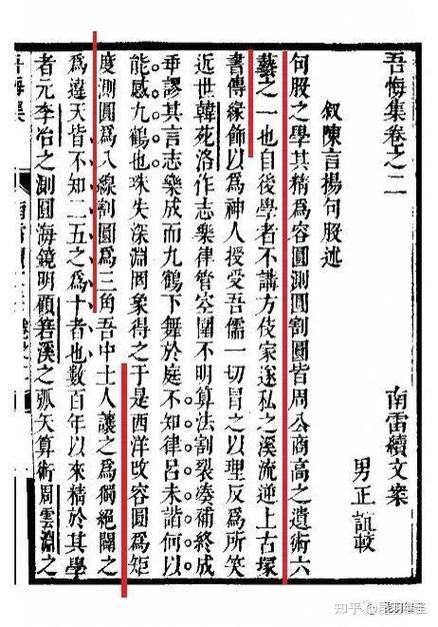 吾悔集卷之二
南雷續文案
男正誼較
叙陳言揚句股述
句股之學其精為容圓測圓割圓皆周公商高之遺術六
藝之一也自後學者不講方伎家遂私之溪流逆上古塚
書傳緣飾以為神人授受吾儒一切冒之以理反為所笑
近世韓死洛作志樂律管空圍不明算法割裂湊補終成
乖謬其言志樂成而九鶴下舞於庭不知律呂未諧何以
能感九鶴也珠失深淵罔象得之于是西洋改容圓為矩
度測圓為八線割圓為三角吾中土人讓之為獨絕闢之
為違天皆不知二五之為十者也數百年以來精於其學
者元李冶之測圓海鏡明顧箬溪之弧矢算術周雲淵之
吾悔集
知乎 @昆羽繼聖